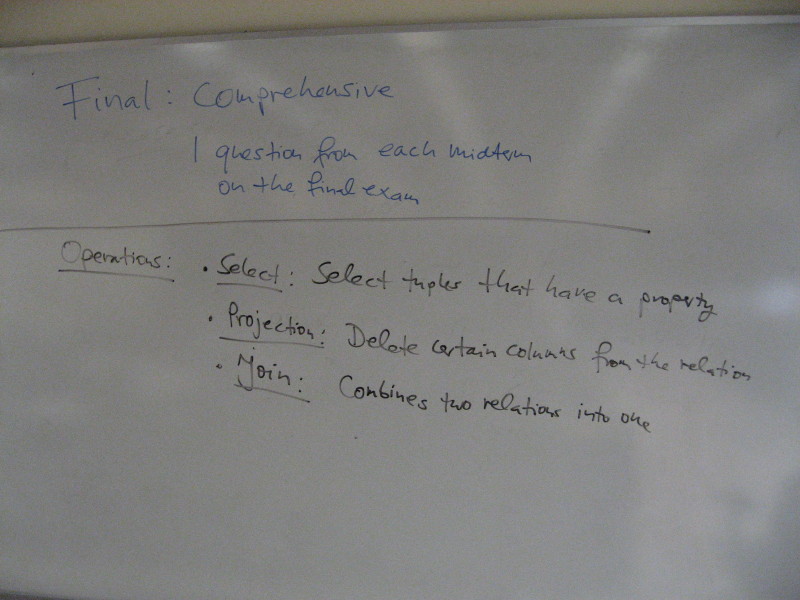 Final: Comprehensive
1 question from each midterm
on the final exam
Operations: • Select: Select tuples that have a property
• Projection: Delete certain columns from the relation
• Join: Combines two relations into one